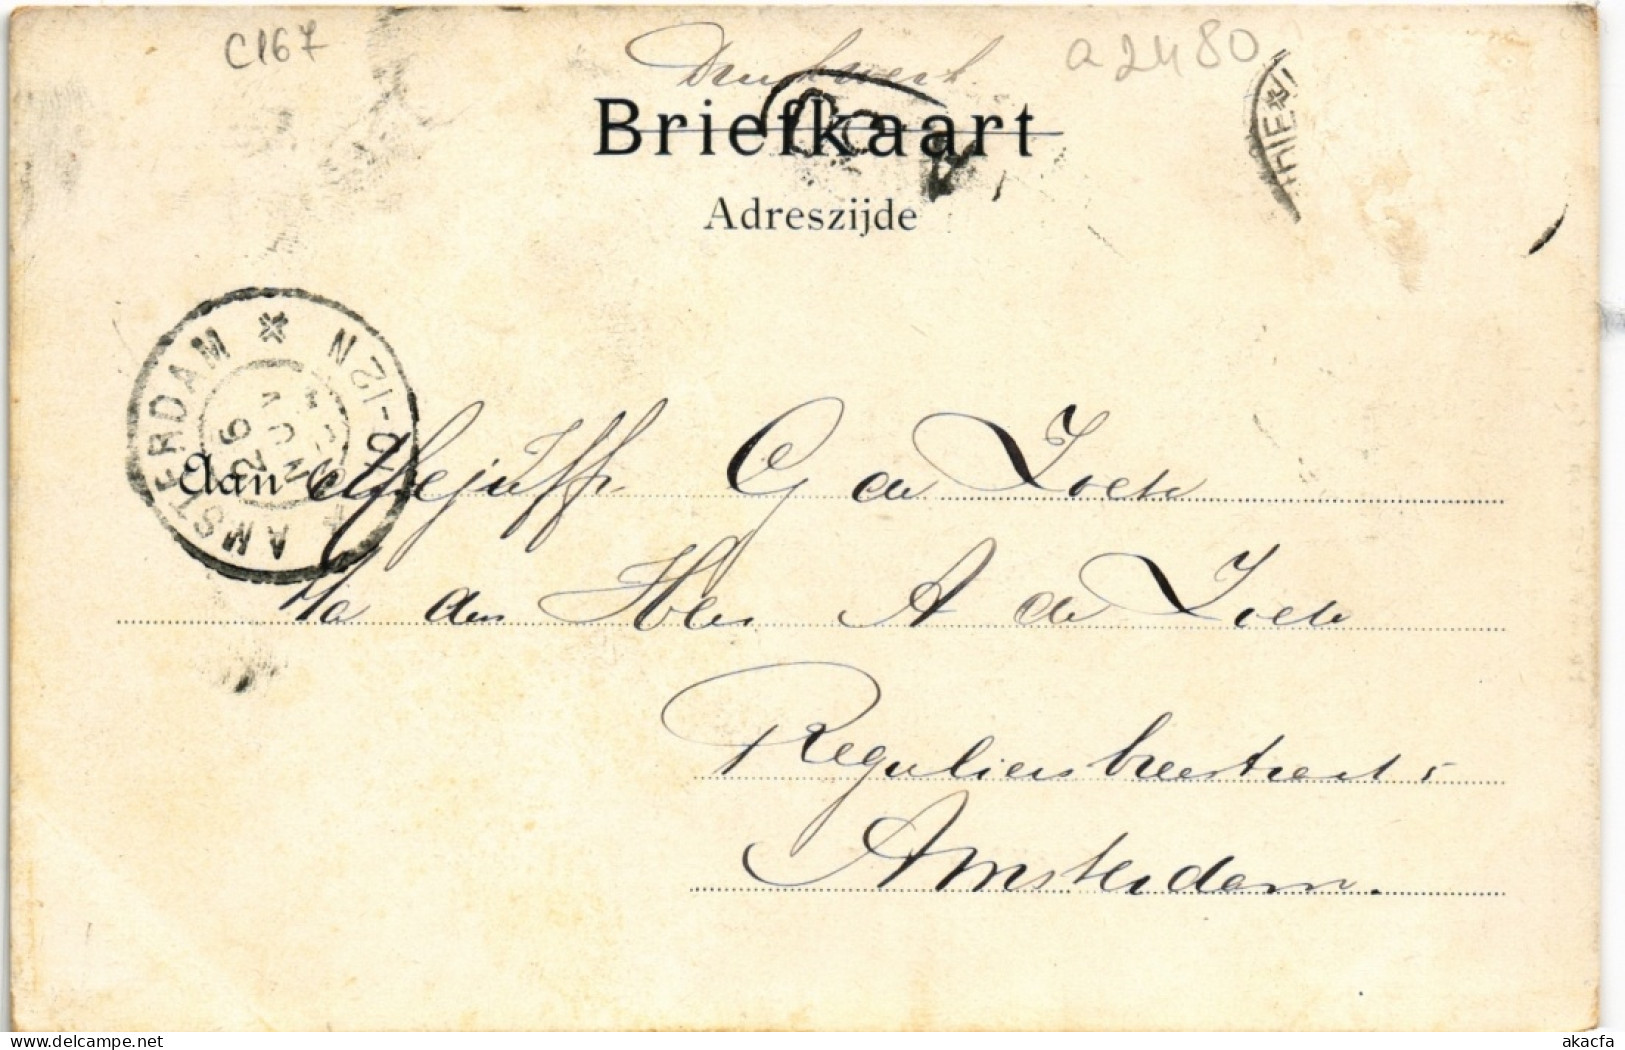 C167
a2480
Drukwerk
Briefkaart
Adreszijde
AMSTERDAM * 
26 JUN
Aan Mejuff. G de Zoete
p/a den Heer A de Zoete
Reguliersbreestraat 5
Amsterdam.
www.delcampe.net
akacfa